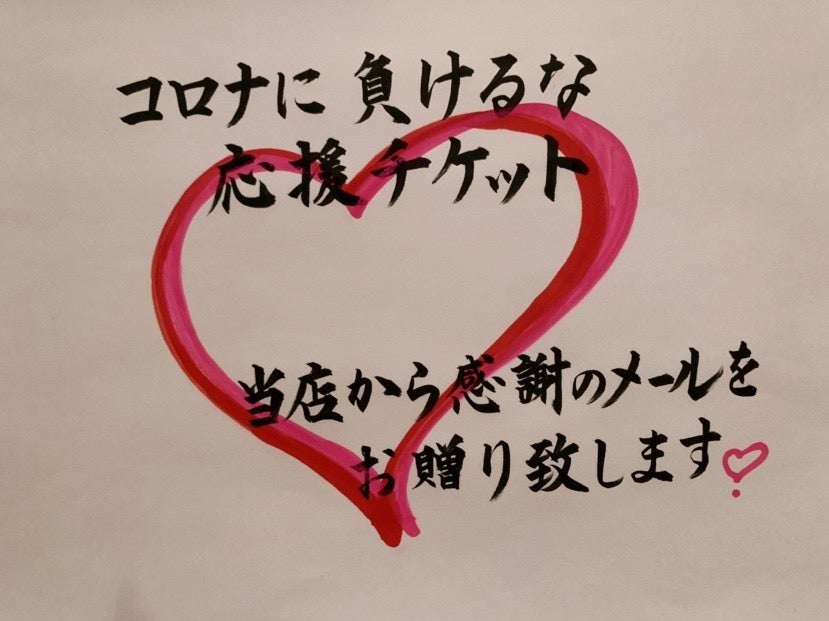 コロナに負けるな
応援チケット
当店から感謝のメールを
お贈り致します